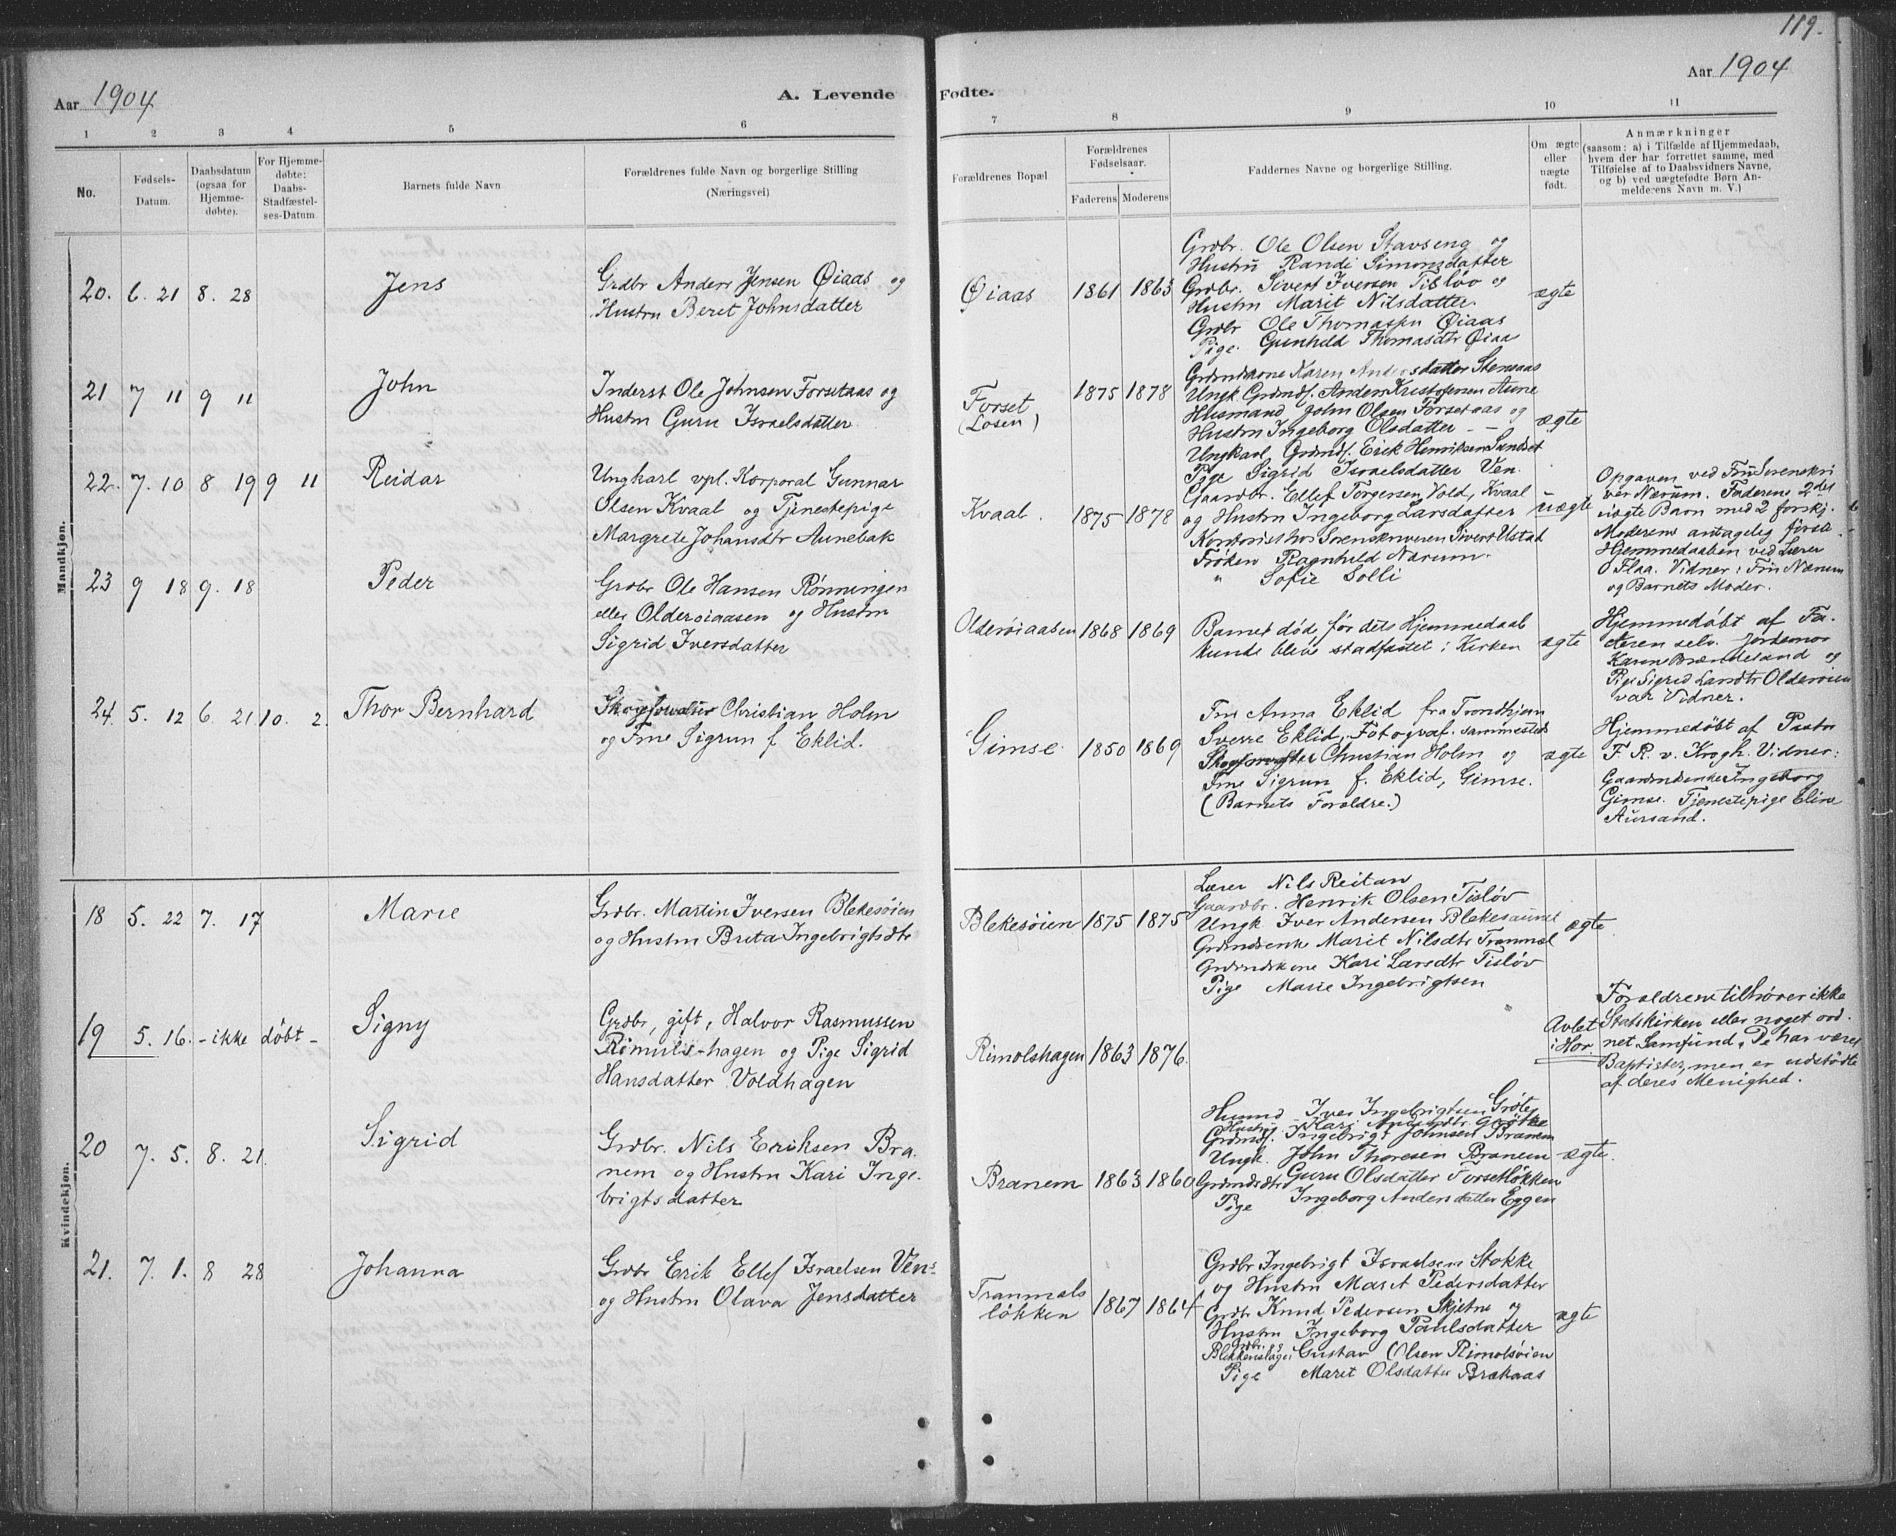 119.
Aar 1904
A. Levende Fødte.
Aar 1904
1 2 3 4 5 6 7 8 9 10 11
No.
Fødsels-Datum.
Daabsdatum (ogsaa for Hjemme-døbte).
For Hjemme-døbte: Daabs-Stadfæstel-ses-Datum.
Barnets fulde Navn
Forældrenes fulde Navn og borgerlige Stilling (Næringsvei)
Forældrenes Bopæl
Forældrenes Fødselsaar.
Faderens Moderens
Faddernes Navne og borgerlige Stilling.
Om ægte eller uægte født.
Anmærkninger
(saasom: a) i Tilfælde af Hjemmedaab,
hvem der har forrettet samme, med
Tilføielse af to Daabsvidners Navne,
og b) ved uægtefødte Børn An-
melderens Navn m. V.)
Mandkjøn.
20. 6. 21 8. 28 Jens
Grdbr Anders Jensen Øiaas og
Hustru Beret Johnsdatter
Øiaas 1861 1863
Grdbr. Ole Olsen Stavseng og
Hustru Randi Simonsdatter
Grdbr. Sivert Iversen Tisløv og
Hustru Marit Nilsdatter.
Grdbr Ole Thomaspn Øiaas
Pige. Gunhild Thomasdtr Øiaa
ægte
21 7 11 9 11 John
Inderst Ole Johnsen Forsetaas og
Hustru Guru Israelsdatter
Forset
(Losen)
1875 1878
Grdmdkone Karen Andersdatter Stensaas
Ungk Grdmdf. Anders Kristofersen Aune
Husmand John Olsen Forsetaas og
Hustru Ingeborg Olsdatter - -
Ungkarl Grdmdf. Erik Henriksen Sundset
Pige Sigrid Israelsdatter Ven.
ægte
22. 7. 10 8 19 9 11 Reidar
Ungkarl vpl. Korporal Gunnar
Olsen Kvaal og Tjenestepige
Margrete Johansdtr Aunebak
Kvaal. 1875 1878
Gaardbr. Ellef Torgersen Vold, Kvaal
og Hustru Ingeborg Larsdatter
Kontorist hos Sorenskriveren Sivert Ustad
Frøken Ragnhild Nærum.
" Sofie Solli
uægte
Opgaven ved Fru Sorenskri
ver Nærum. Faderens 2det
uægte Barn med 2 forskj.
Moderens antagelig første.
Hjemmedaaben ved Lærer
O Flaa. Vidner: Fru Nærum
og Barnets Moder.
23 9 18 9. 18 Peder
Grdbr Ole Hansen Rønningen
eller Olderøiaasen og Hustru
Sigrid Iversdatter
Olderøiaasen 1868 1869
Barnet død, før dets Hjemmedaab
kunde blive stadfæstet i Kirken
ægte
Hjemmedøbt af Fa-
deren selv. Jordemor
Karen Brændeland og
Pige Sigrid Larsdtr Olderøien
var Vidner.
24. 5. 12 6. 21 10. 2. Thor Bernhard
Skogforvalter Christian Holm
og Frue Sigrun f. Eklid.
Gimse. 1850 1869
Fru Anna Eklid fra Trondhjem
Sverre Eklid, Fotograf. sammesteds
Skogforvalter Christian Holm og
Frue Sigrun f. Eklid, Gimse.
(Barnets Forældre.)
ægte
Hjemmedøbt af Pastor
F. R. v. Krogh. Vidner:
Gaardmdenke Ingeborg
Gimse. Tjenestepige Eline
Aursand.
Kvindekjøn.
18 5. 22 7. 17 Marie
Grdbr. Martin Iversen Blekesøien
og Hustru Brita Ingebrigtsdtr
Blekesøien 1875 1875
Lærer Nils Reitan
Gaardbr. Henrik Olsen Tisløv
Ungk Iver Andersen Blekesaunet
Grdmdenke Marit Nilsdtr Tranmæl
Grdmdskone Kari Larsdtr Tisløv
Pige Marie Ingebrigtsen
ægte
19 5. 16. - ikke døbt - Signy
Grdbr, gift, Halvor Rasmussen
Rømuls-hagen og Pige Sigrid
Hansdatter Voldhagen
Rimolshagen 1863 1876.
Avlet
i Hor.
Forældrene tilhører ikke
Statskirken eller noget ord-
net Samfund. De har været
Baptister, men er udstødte
af deres Menighed.
20 7. 5. 8. 21. Sigrid
Grdbr. Nils Eriksen Bra-
nem og Hustru Kari Inge-
brigtsdatter
Branem 1863 1860
Husmd Iver Ingebrigtsen Grøte
Hustru Kari Andersdtr Grøtte
Grdmdf. Ingebrigt Johnsen Branem
Ungk. John Thoresen Branem
Grdmdsdtr Guru Olsdatter Forsetløkken
Pige Ingeborg Andersdatter Eggen
ægte.
21. 7. 1. 8 28 Johanna
Grdbr Erik Ellef Israelsen Ven
og Hustru Olava Jensdatter
Tranmæls
løkken
1867 1864
Grdbr Ingebrigt Israelsen Stokke
og Hustru Marit Pedersdatter
Grdbr Knud Pedersen Skjetne og
Hustru Ingeborg Paulsdatter
Grdbr. Blekkenslager Gustav Olsen Rimolsøien
Pige Marit Olsdatter Brækaas
ægte